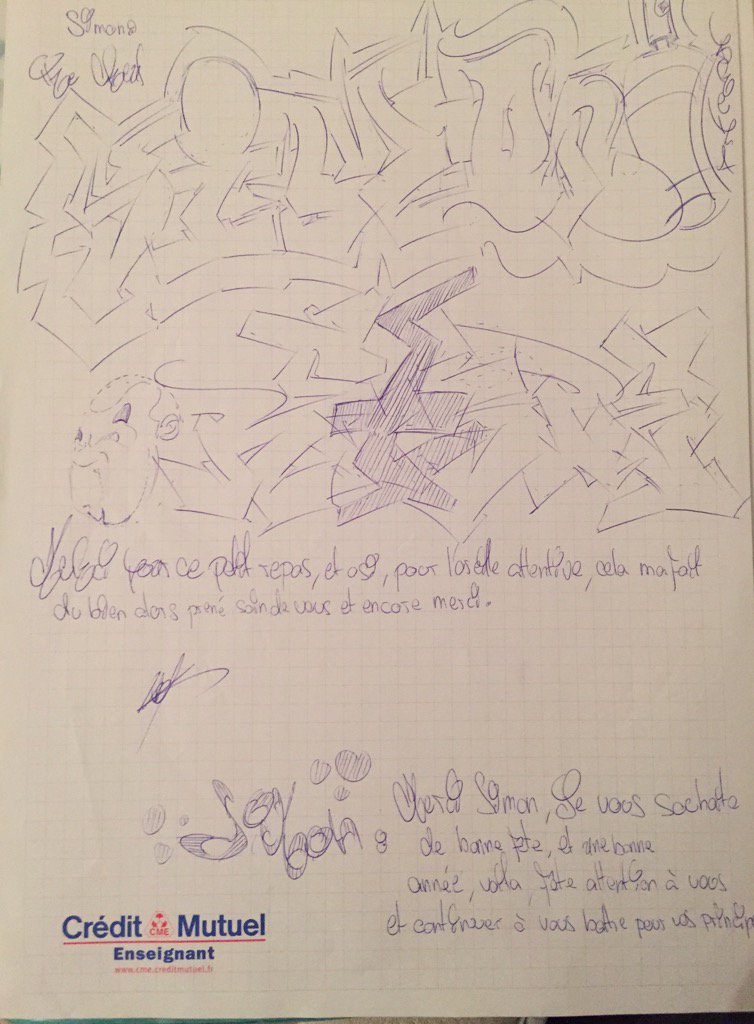 Simon
SIMEON
Merci pour ce petit repas, et osi, pour l'oreille attentive, cela ma fait
du bien alors prené soin de vous et encore merci.
Merci Simon, Je vous sochaite
de bonne fete, et une bonne
année, voila, fete attention à vous
et continuer à vous batre pour vos princip
Crédit CME Mutuel
Enseignant
www.cme.creditmutuel.fr